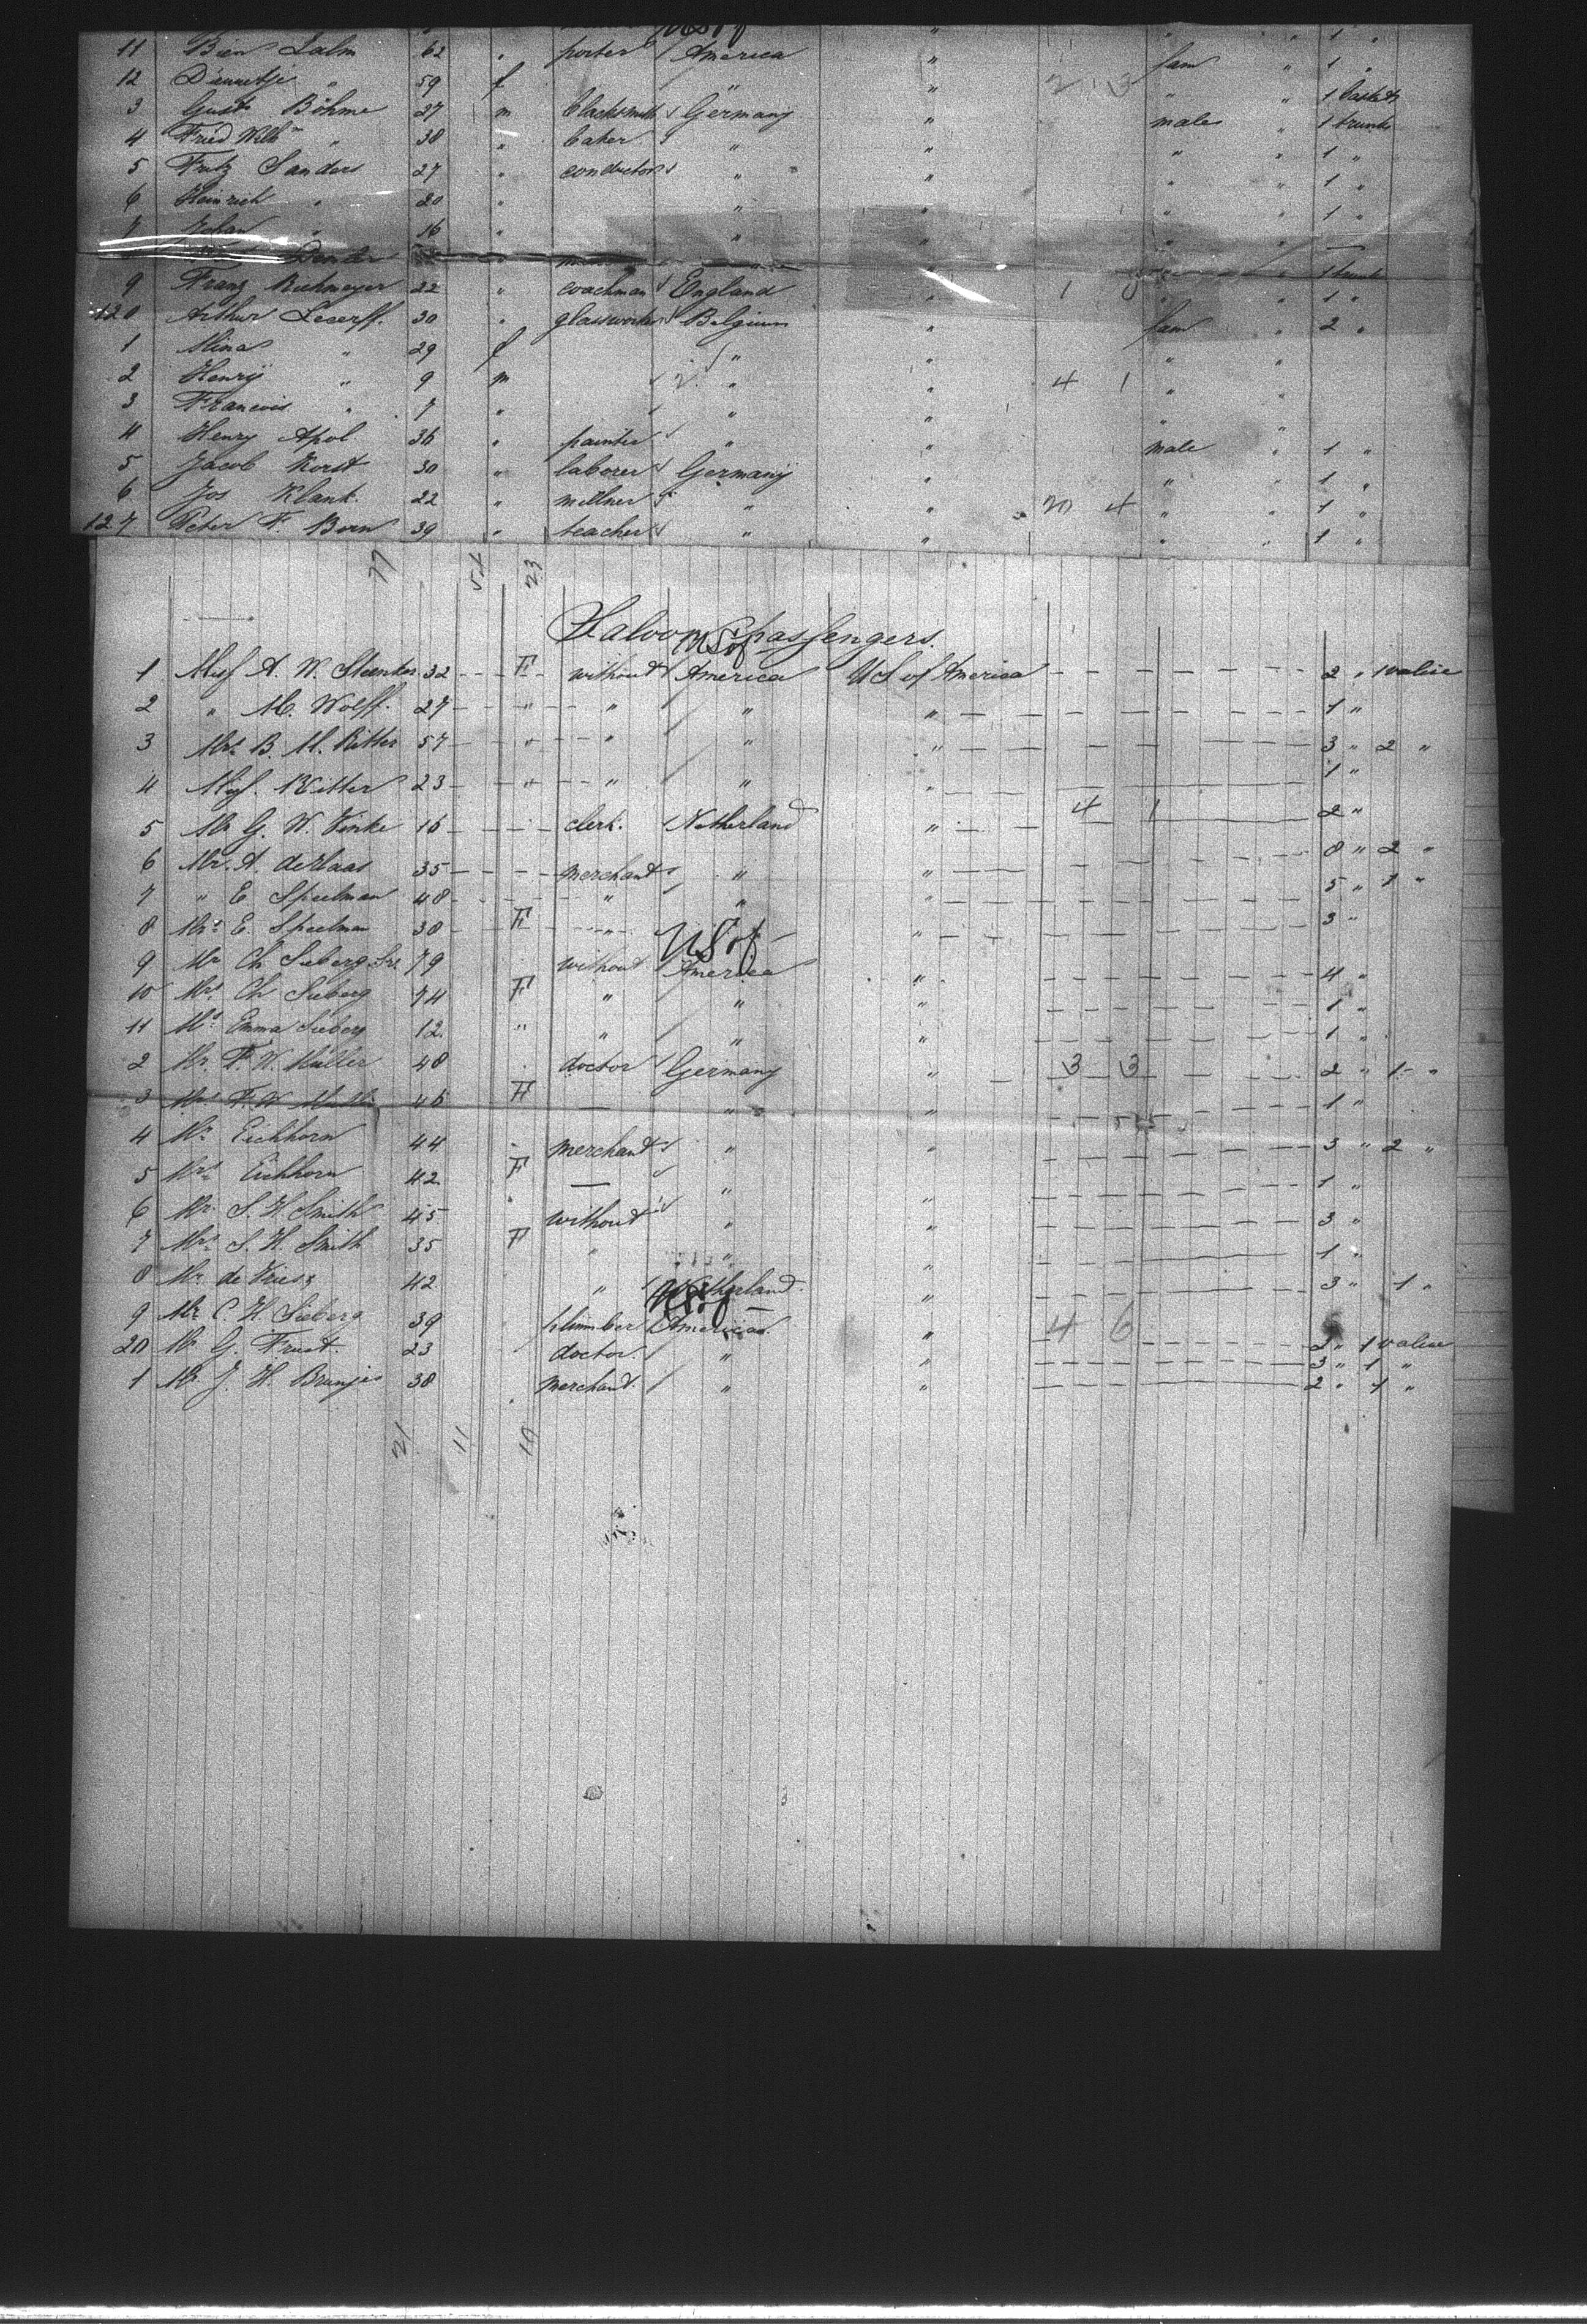 US of
11 Bien Salm 62 " porter America " fam " 1 "
12 " 59 f " " 2 3 " " 1 basket
3 Gust Böhme 27 m blacksmith Germany " male " 1 trunk
4 Fried Wilh " 38 " baker " " " " 1 "
5 Fritz Sanders 27 " conductor " " " " 1 "
6 Heinrich " 20 " " " " " 1 "
7 Johan " 16 " " " " " —
1 trunk
9 Franz 22 " coachman England " 1 0 " " 1 "
120 Arthur Lecerff 30 " glassworker Belgium " fam " 2 "
1 Mina " 29 f " " " "
2 Henry " 9 m 2 " " 4 1 " "
3 Francois " 7 " " " " "
4 Henry Apol 36 " painter " " male " 1 "
5 Jacob Korst 30 " laborer Germany " " " 1 "
6 Jos Klank 22 " millner " " 20 4 " " 1 "
127 Peter F. Born 39 " teacher " " " " 1 "
77 54 23
Saloon passengers.
US of
1 Miss A. W. 32 F without America US of America 2 " 1 valise
2 " M. Wolff. 27 " " " " 1 "
3 Mrs B. M. Ritter 57 " " " " 3 " 2 "
4 Miss. Ritter 23 " " " " 1 "
5 Mr G. W. Vinke 16 clerk. Netherland " 4 1 2 "
6 Mr. A. de Haas 35 merchant " " 8 " 2 "
7 " E. Speelman 48 " " " 5 " 1 "
8 Mrs E. Speelman 30 F " " 3 "
US of
9 Mr Ch Sieberg Sr. 79 without America " 4 "
10 Mrs Ch Sieberg 74 F " " " 1 "
11 Ms Emma Sieberg 12. " " " " 1 "
2 Mr. F. W. Müller 48 doctor Germany " 3 3 2 " 1 "
3 Mrs F. W. Müller 46 F — " " 1 "
4 Mr Eichhorn 44 merchant " " 3 " 2 "
5 Mrs Eichhorn 42 F — " " 1 "
6 Mr. S. H. Smith 45 without " " 3 "
7 Mrs S. H. Smith 35 F " " " 1 "
8 Mr. de Vries 42 " Netherland. " 3 " 1 "
US of
9 Mr C. H. Sieberg 39 plumber America " 4 6 2 " 1 valise
20 Mr G. 23 doctor. " " 3 " 1 "
1 Mr J. H. Brunjes 38 merchant. " " 2 " 1 "
21 11 10